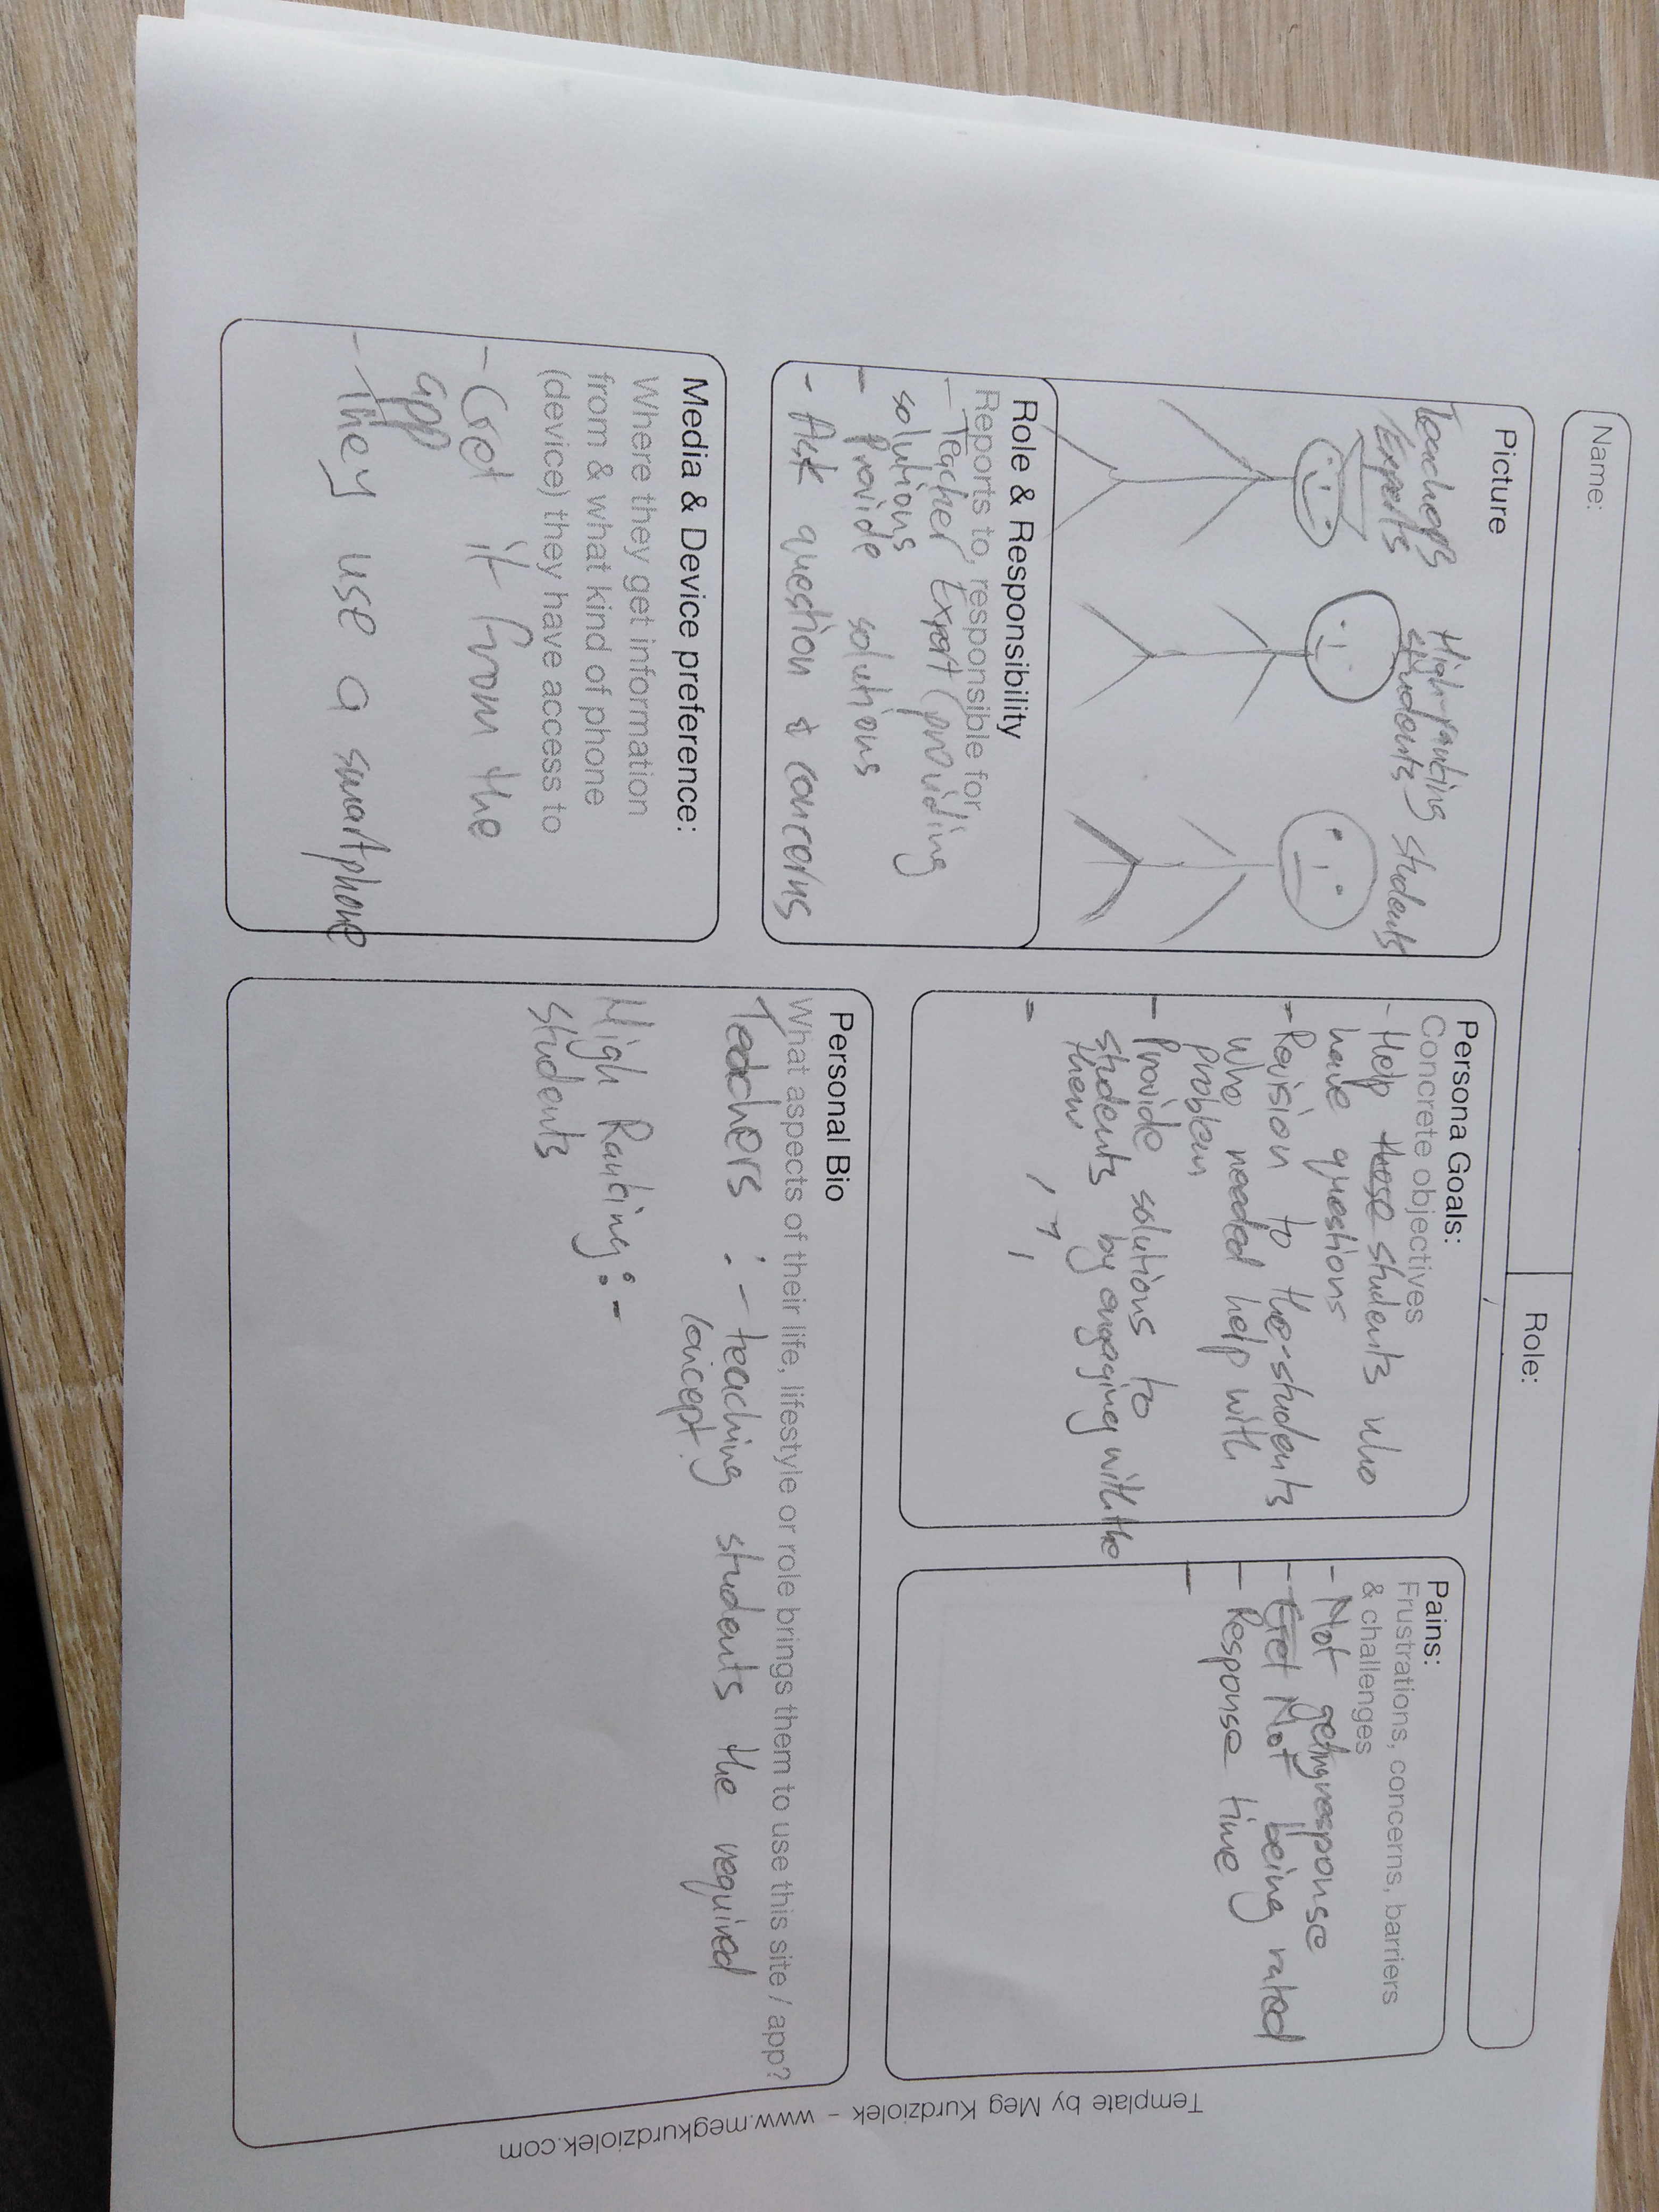 Name:
Role:
Picture
Teachers High ranking students
Experts students
Role & Responsibility
Reports to, responsible for
- Teacher Expert (providing
solutions
- Provide solutions
- Ask question & concerns
Media & Device preference:
Where they get information
from & what kind of phone
(device) they have access to
- Get it from the
app
- They use a smartphone
Persona Goals:
Concrete objectives
- Help those students who
have questions
- Revision to the students
who needed help with
problem
- Provide solutions to
students by engaging with the
them
-
Pains:
Frustrations, concerns, barriers
& challenges
- Not getting response
- Get Not being rated
- Response time
-
Personal Bio
What aspects of their life, lifestyle or role brings them to use this site / app?
Teachers : - teaching students the required
concept.
High Ranking : -
students
Template by Meg Kurdziolek - www.megkurdziolek.com